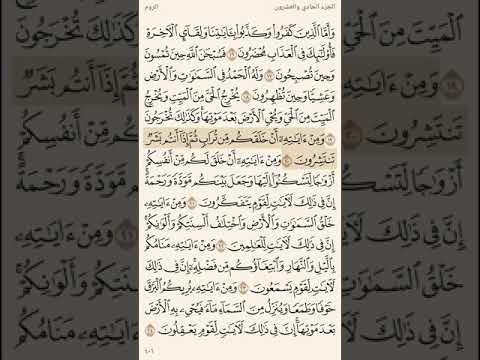 الجزء الحادي والعشرون
الروم
وَأَمَّا ٱلَّذِينَ كَفَرُواْ وَكَذَّبُواْ بِـَٔايَٰتِنَا وَلِقَآيِٕ ٱلْأٓخِرَةِ
فَأُوْلَٰٓئِكَ فِي ٱلْعَذَابِ مُحْضَرُونَ ١٦ فَسُبْحَٰنَ ٱللَّهِ حِينَ تُمْسُونَ
وَحِينَ تُصْبِحُونَ ١٧ وَلَهُ ٱلْحَمْدُ فِي ٱلسَّمَٰوَٰتِ وَٱلْأَرْضِ
وَعَشِيًّا وَحِينَ تُظْهِرُونَ ١٨ يُخْرِجُ ٱلْحَيَّ مِنَ ٱلْمَيِّتِ وَيُخْرِجُ
ٱلْمَيِّتَ مِنَ ٱلْحَيِّ وَيُحْيِ ٱلْأَرْضَ بَعْدَ مَوْتِهَا وَكَذَٰلِكَ تُخْرَجُونَ
١٩ وَمِنْ ءَايَٰتِهِۦٓ أَنْ خَلَقَكُم مِّن تُرَابٍ ثُمَّ إِذَآ أَنتُم بَشَرٌ
تَنتَشِرُونَ ٢٠ وَمِنْ ءَايَٰتِهِۦٓ أَنْ خَلَقَ لَكُم مِّنْ أَنفُسِكُمْ
أَزْوَٰجًا لِّتَسْكُنُوٓاْ إِلَيْهَا وَجَعَلَ بَيْنَكُم مَّوَدَّةً وَرَحْمَةً
إِنَّ فِي ذَٰلِكَ لَأٓيَٰتٍ لِّقَوْمٍ يَتَفَكَّرُونَ ٢١ وَمِنْ ءَايَٰتِهِۦ
خَلْقُ ٱلسَّمَٰوَٰتِ وَٱلْأَرْضِ وَٱخْتِلَٰفُ أَلْسِنَتِكُمْ وَأَلْوَٰنِكُمْ
إِنَّ فِي ذَٰلِكَ لَأٓيَٰتٍ لِّلْعَٰلِمِينَ ٢٢ وَمِنْ ءَايَٰتِهِۦ مَنَامُكُم
بِٱلَّيْلِ وَٱلنَّهَارِ وَٱبْتِغَآؤُكُم مِّن فَضْلِهِۦٓ إِنَّ فِي ذَٰلِكَ
لَأٓيَٰتٍ لِّقَوْمٍ يَسْمَعُونَ ٢٣ وَمِنْ ءَايَٰتِهِۦ يُرِيكُمُ ٱلْبَرْقَ
خَوْفًا وَطَمَعًا وَيُنَزِّلُ مِنَ ٱلسَّمَآءِ مَآءً فَيُحْيِۦ بِهِ ٱلْأَرْضَ
بَعْدَ مَوْتِهَآ إِنَّ فِي ذَٰلِكَ لَأٓيَٰتٍ لِّقَوْمٍ يَعْقِلُونَ ٢٤
٤٠٦